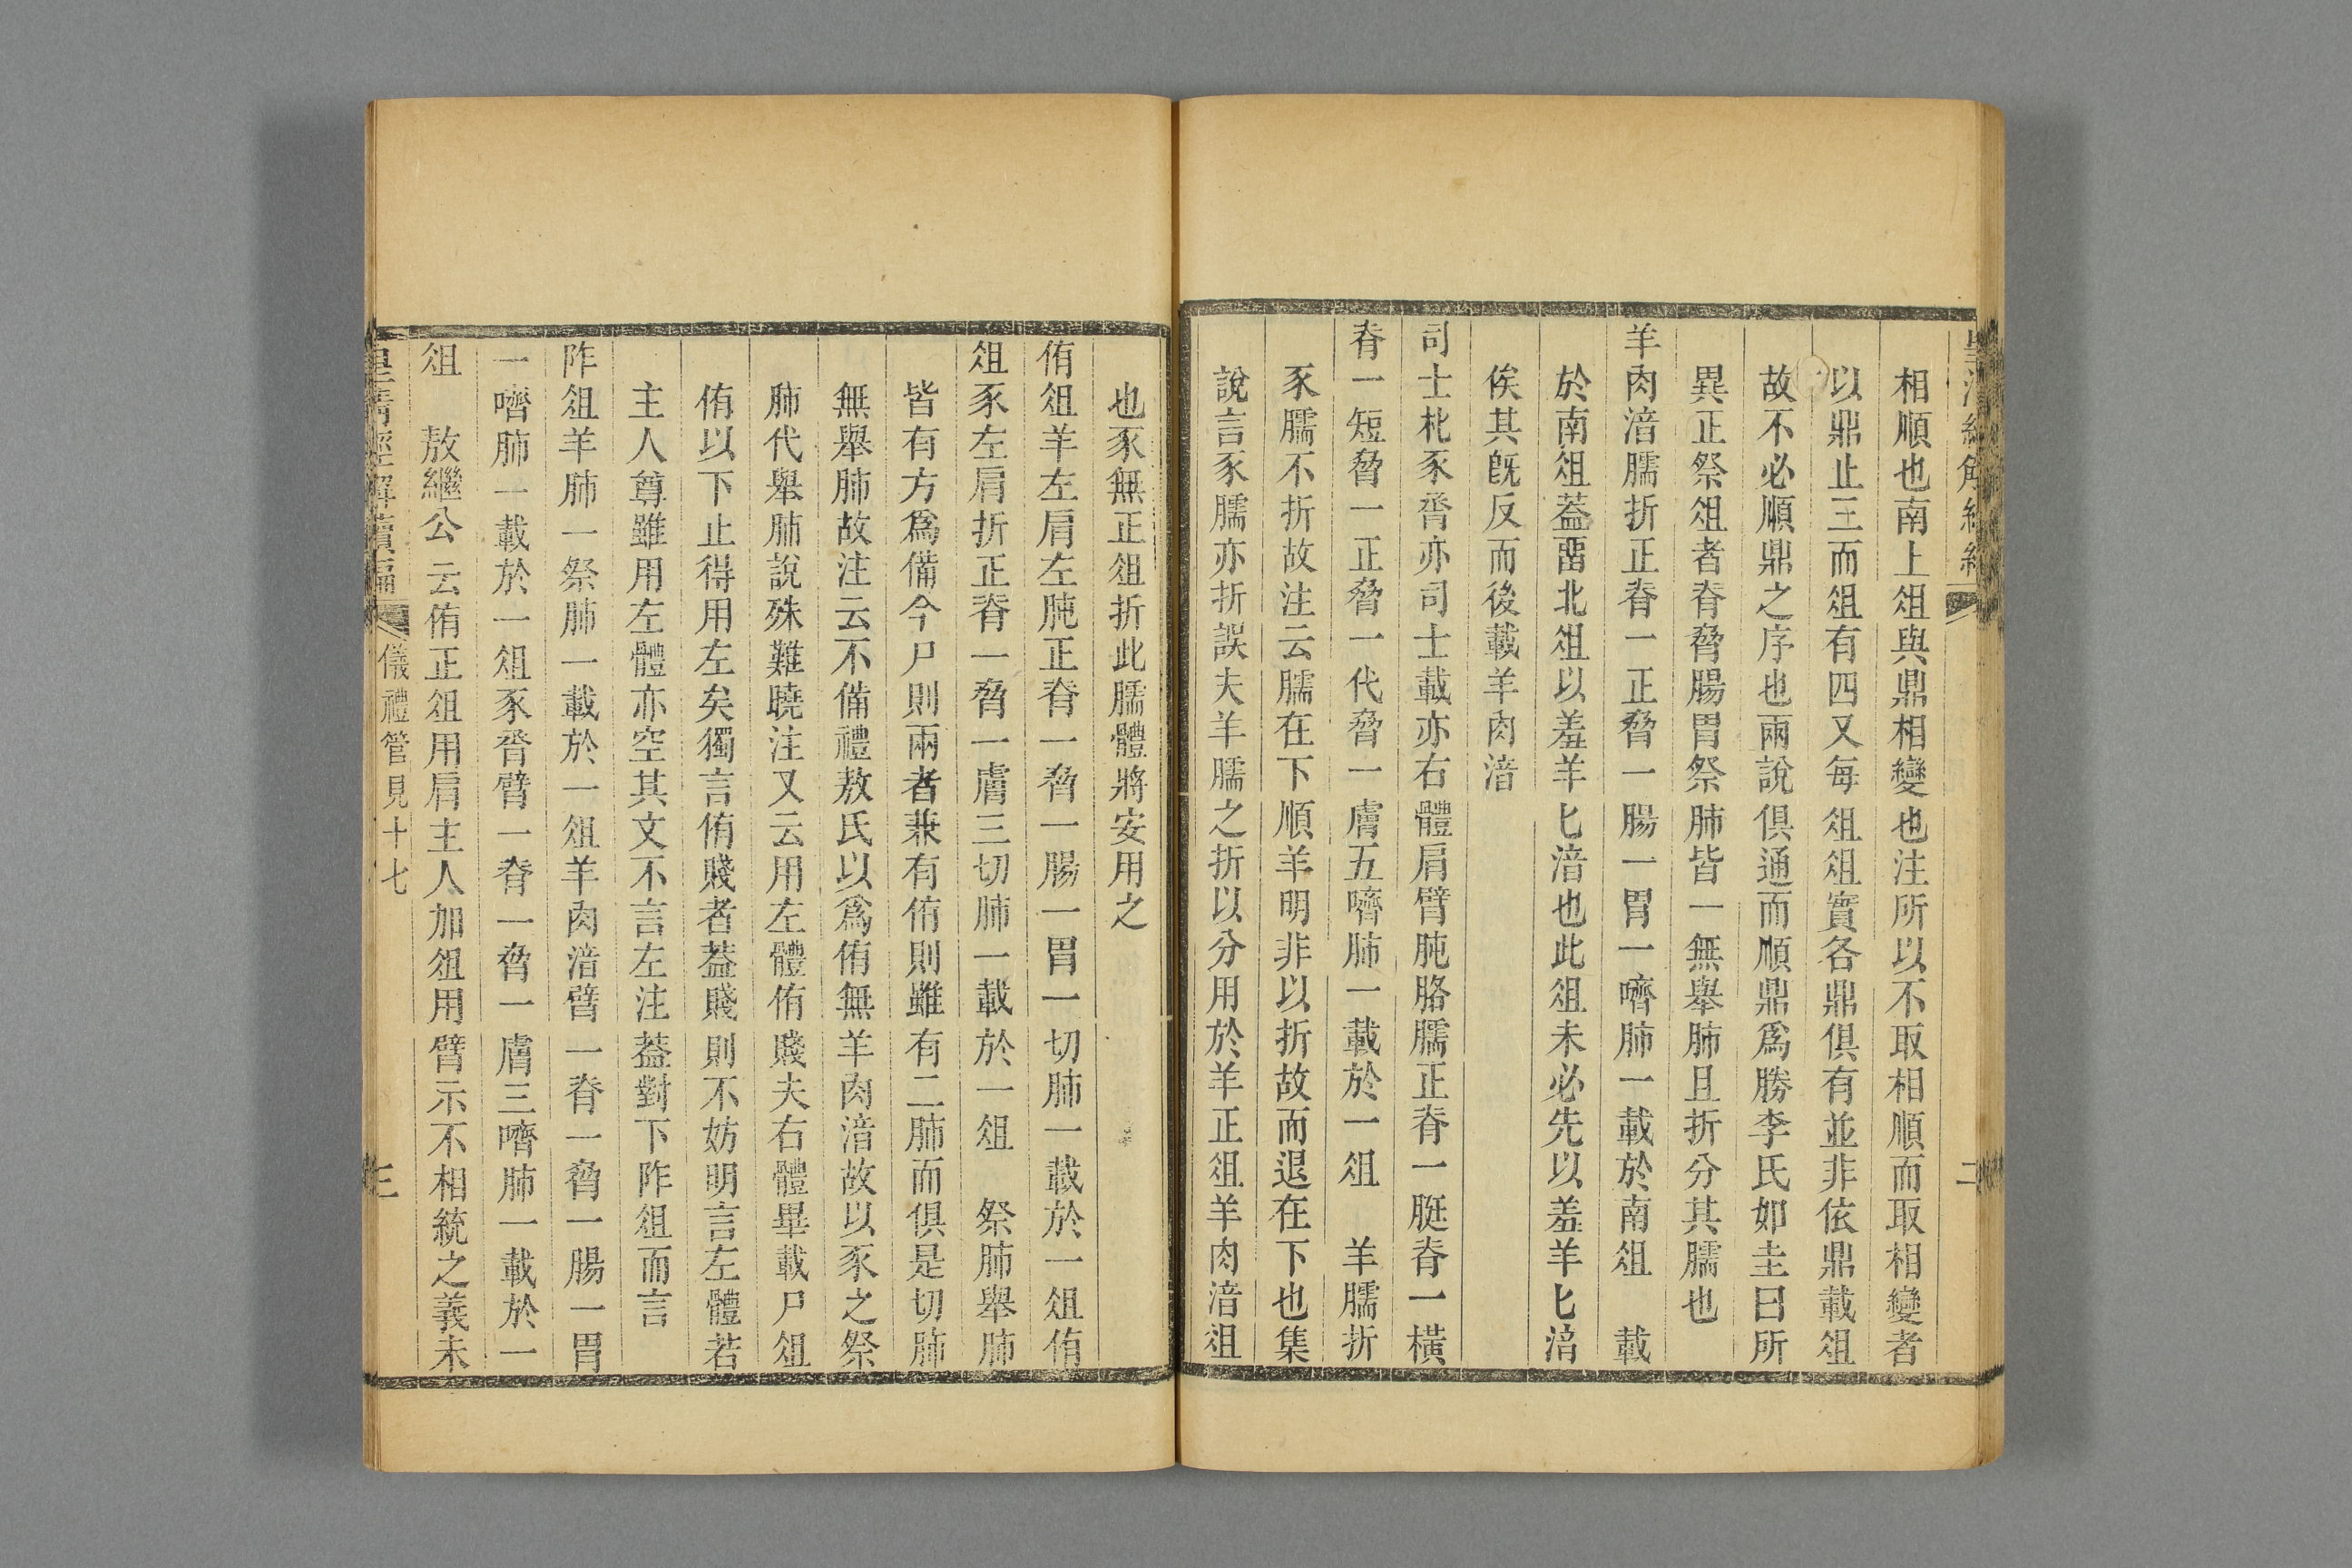 相順也南上俎與鼎相變也注所以不取相順而取相變者
以鼎止三而俎有四又每俎俎實各鼎俱有並非依鼎載俎
故不必順鼎之序也兩說俱通而順鼎爲勝李氏如圭曰所
異正祭俎者脊脅腸胃祭肺皆一無舉肺且折分其臑也
羊肉湆臑折正脊一正脅一腸一胃一嚌肺一載於南俎　載
於南俎葢畱北俎以羞羊匕湆也此俎未必先以羞羊匕湆
俟其旣反而後載羊肉湆
司士朼豕脀亦司士載亦右體肩臂肫胳臑正脊一脡脊一橫
脊一短脅一正脅一代脅一膚五嚌肺一載於一俎　羊臑折
豕臑不折故注云臑在下順羊明非以折故而退在下也集
說言豕臑亦折誤夫羊臑之折以分用於羊正俎羊肉湆俎
也豕無正俎折此臑體將安用之
侑俎羊左肩左肫正脊一脅一腸一胃一切肺一載於一俎侑
俎豕左肩折正脊一脅一膚三切肺一載於一俎　祭肺舉肺
皆有方爲備今尸則兩者兼有侑則雖有二肺而俱是切肺
無舉肺故注云不備禮敖氏以爲侑無羊肉湆故以豕之祭
肺代舉肺說殊難曉注又云用左體侑賤夫右體畢載尸俎
侑以下止得用左矣獨言侑賤者葢賤則不妨明言左體若
主人尊雖用左體亦空其文不言左注葢對下阼俎而言
阼俎羊肺一祭肺一載於一俎羊肉湆臂一脊一脅一腸一胃
一嚌肺一載於一俎豕脀臂一脊一脅一膚三嚌肺一載於一
俎　敖繼公云侑正俎用肩主人加俎用臂示不相統之義未
皇淸經解續編　儀禮管見十七　三